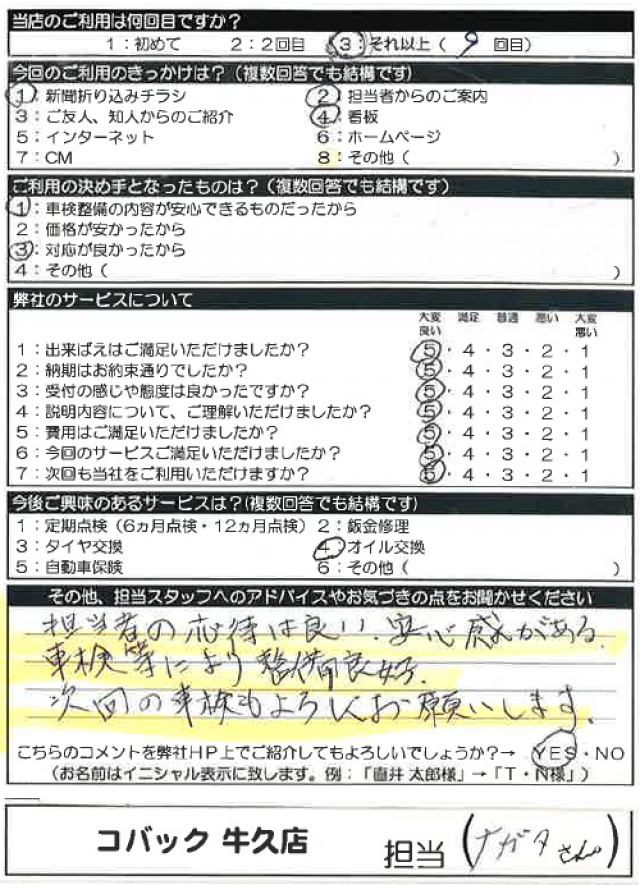 当店のご利用は何回目ですか？
1：初めて 2：2回目 3：それ以上（ 9 回目）
今回のご利用のきっかけは？（複数回答でも結構です）
1：新聞折り込みチラシ 2：担当者からのご案内
3：ご友人、知人からのご紹介 4：看板
5：インターネット 6：ホームページ
7：CM 8：その他（ ）
ご利用の決め手となったものは？（複数回答でも結構です）
1：車検整備の内容が安心できるものだったから
2：価格が安かったから
3：対応が良かったから
4：その他（ ）
弊社のサービスについて
大変良い 満足 普通 悪い 大変悪い
1：出来ばえはご満足いただけましたか？ 5・4・3・2・1
2：納期はお約束通りでしたか？ 5・4・3・2・1
3：受付の感じや態度は良かったですか？ 5・4・3・2・1
4：説明内容について、ご理解いただけましたか？ 5・4・3・2・1
5：費用はご満足いただけましたか？ 5・4・3・2・1
6：今回のサービスご満足いただけましたか？ 5・4・3・2・1
7：次回も当社をご利用いただけますか？ 5・4・3・2・1
今後ご興味のあるサービスは？（複数回答でも結構です）
1：定期点検（6ヵ月点検・12ヵ月点検） 2：鈑金修理
3：タイヤ交換 4：オイル交換
5：自動車保険 6：その他（ ）
その他、担当スタッフへのアドバイスやお気づきの点をお聞かせください
担当者の応待は良い、安心感がある。
車検等により整備良好。
次回の車検もよろしくお願いします。
こちらのコメントを弊社HP上でご紹介してもよろしいでしょうか？→ YES・NO
（お名前はイニシャル表示に致します。例：「直井 太郎様」→「T・N様」）
コバック 牛久店 担当（ナガタさん）